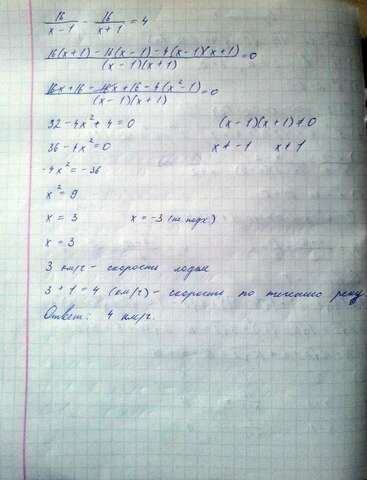 16/(x-1) - 16/(x+1) = 4
(16(x+1) - 16(x-1) - 4(x-1)(x+1))/((x-1)(x+1)) = 0
(16x+16-16x+16-4(x²-1))/((x-1)(x+1)) = 0
32-4x²+4=0 (x-1)(x+1)≠0
36-4x²=0 x≠-1 x≠1
-4x²=-36
x²=9
x=3 x=-3 (не подх)
x=3
3 км/г - скорость лодки
3+1=4 (км/г) - скорость по течению реки
Ответ: 4 км/г.